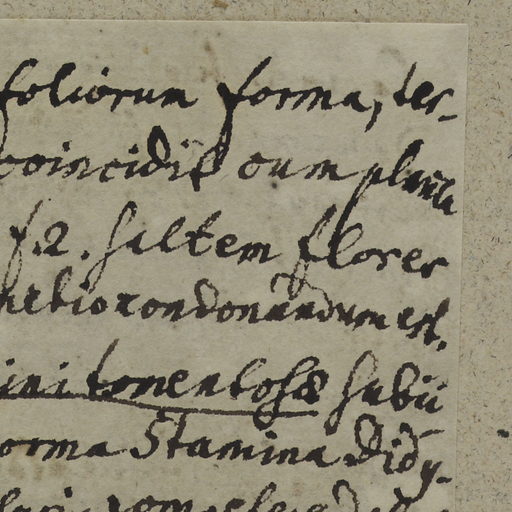 foliorum forma, ter-
coincidit cum planta
f. 2. saltem flores
condonandum est,
ini tomentosæ subii
orma Stamina Didy-